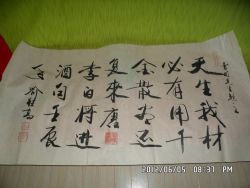 天生我材
必有用千
金散尽还
复來唐
李白将进
酒句壬辰
2012/06/05 08:37 PM